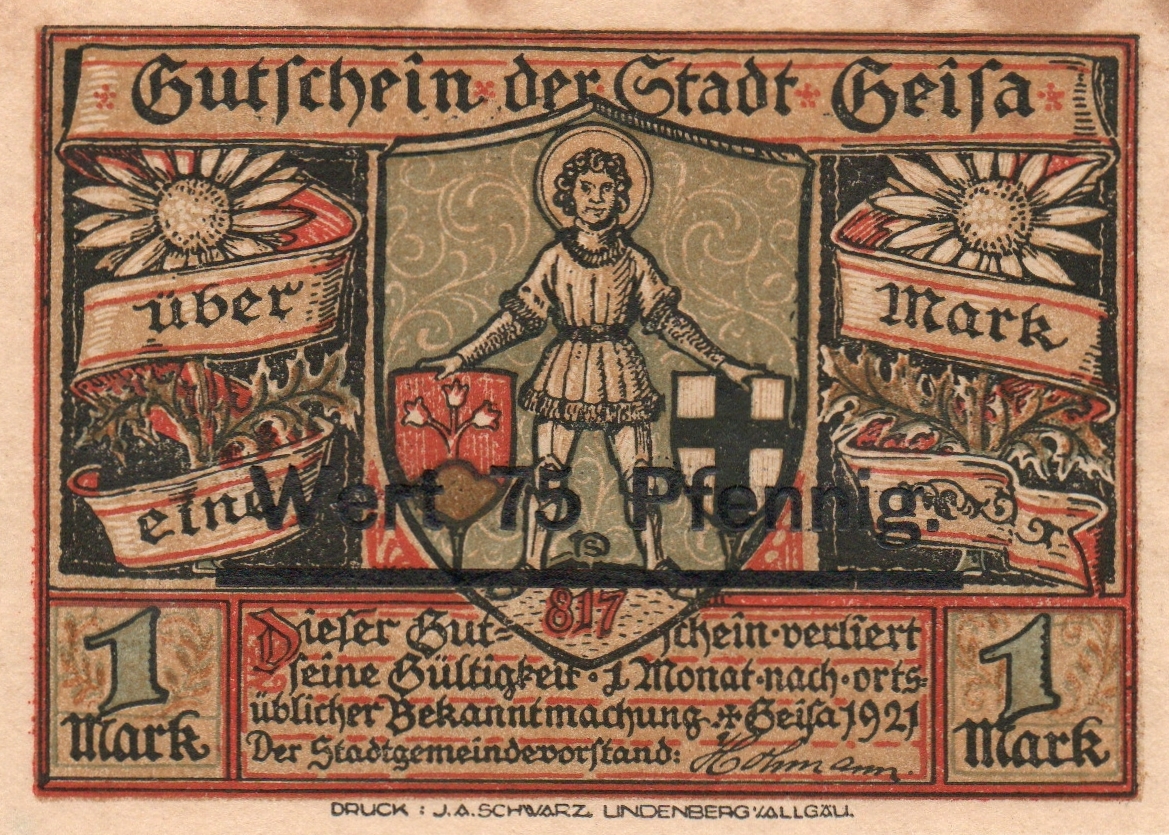 Gutschein der Stadt Geisa
über
Mark
eine
Wert 75 Pfennig.
817
1
Mark
Dieser Gut= schein verliert
seine Gültigkeit · 1 Monat · nach · orts=
üblicher Bekanntmachung Geisa 1921
Der Stadtgemeindevorstand: Hohmann.
1
Mark
DRUCK : J. A. SCHWARZ, LINDENBERG I/ALLGÄU.